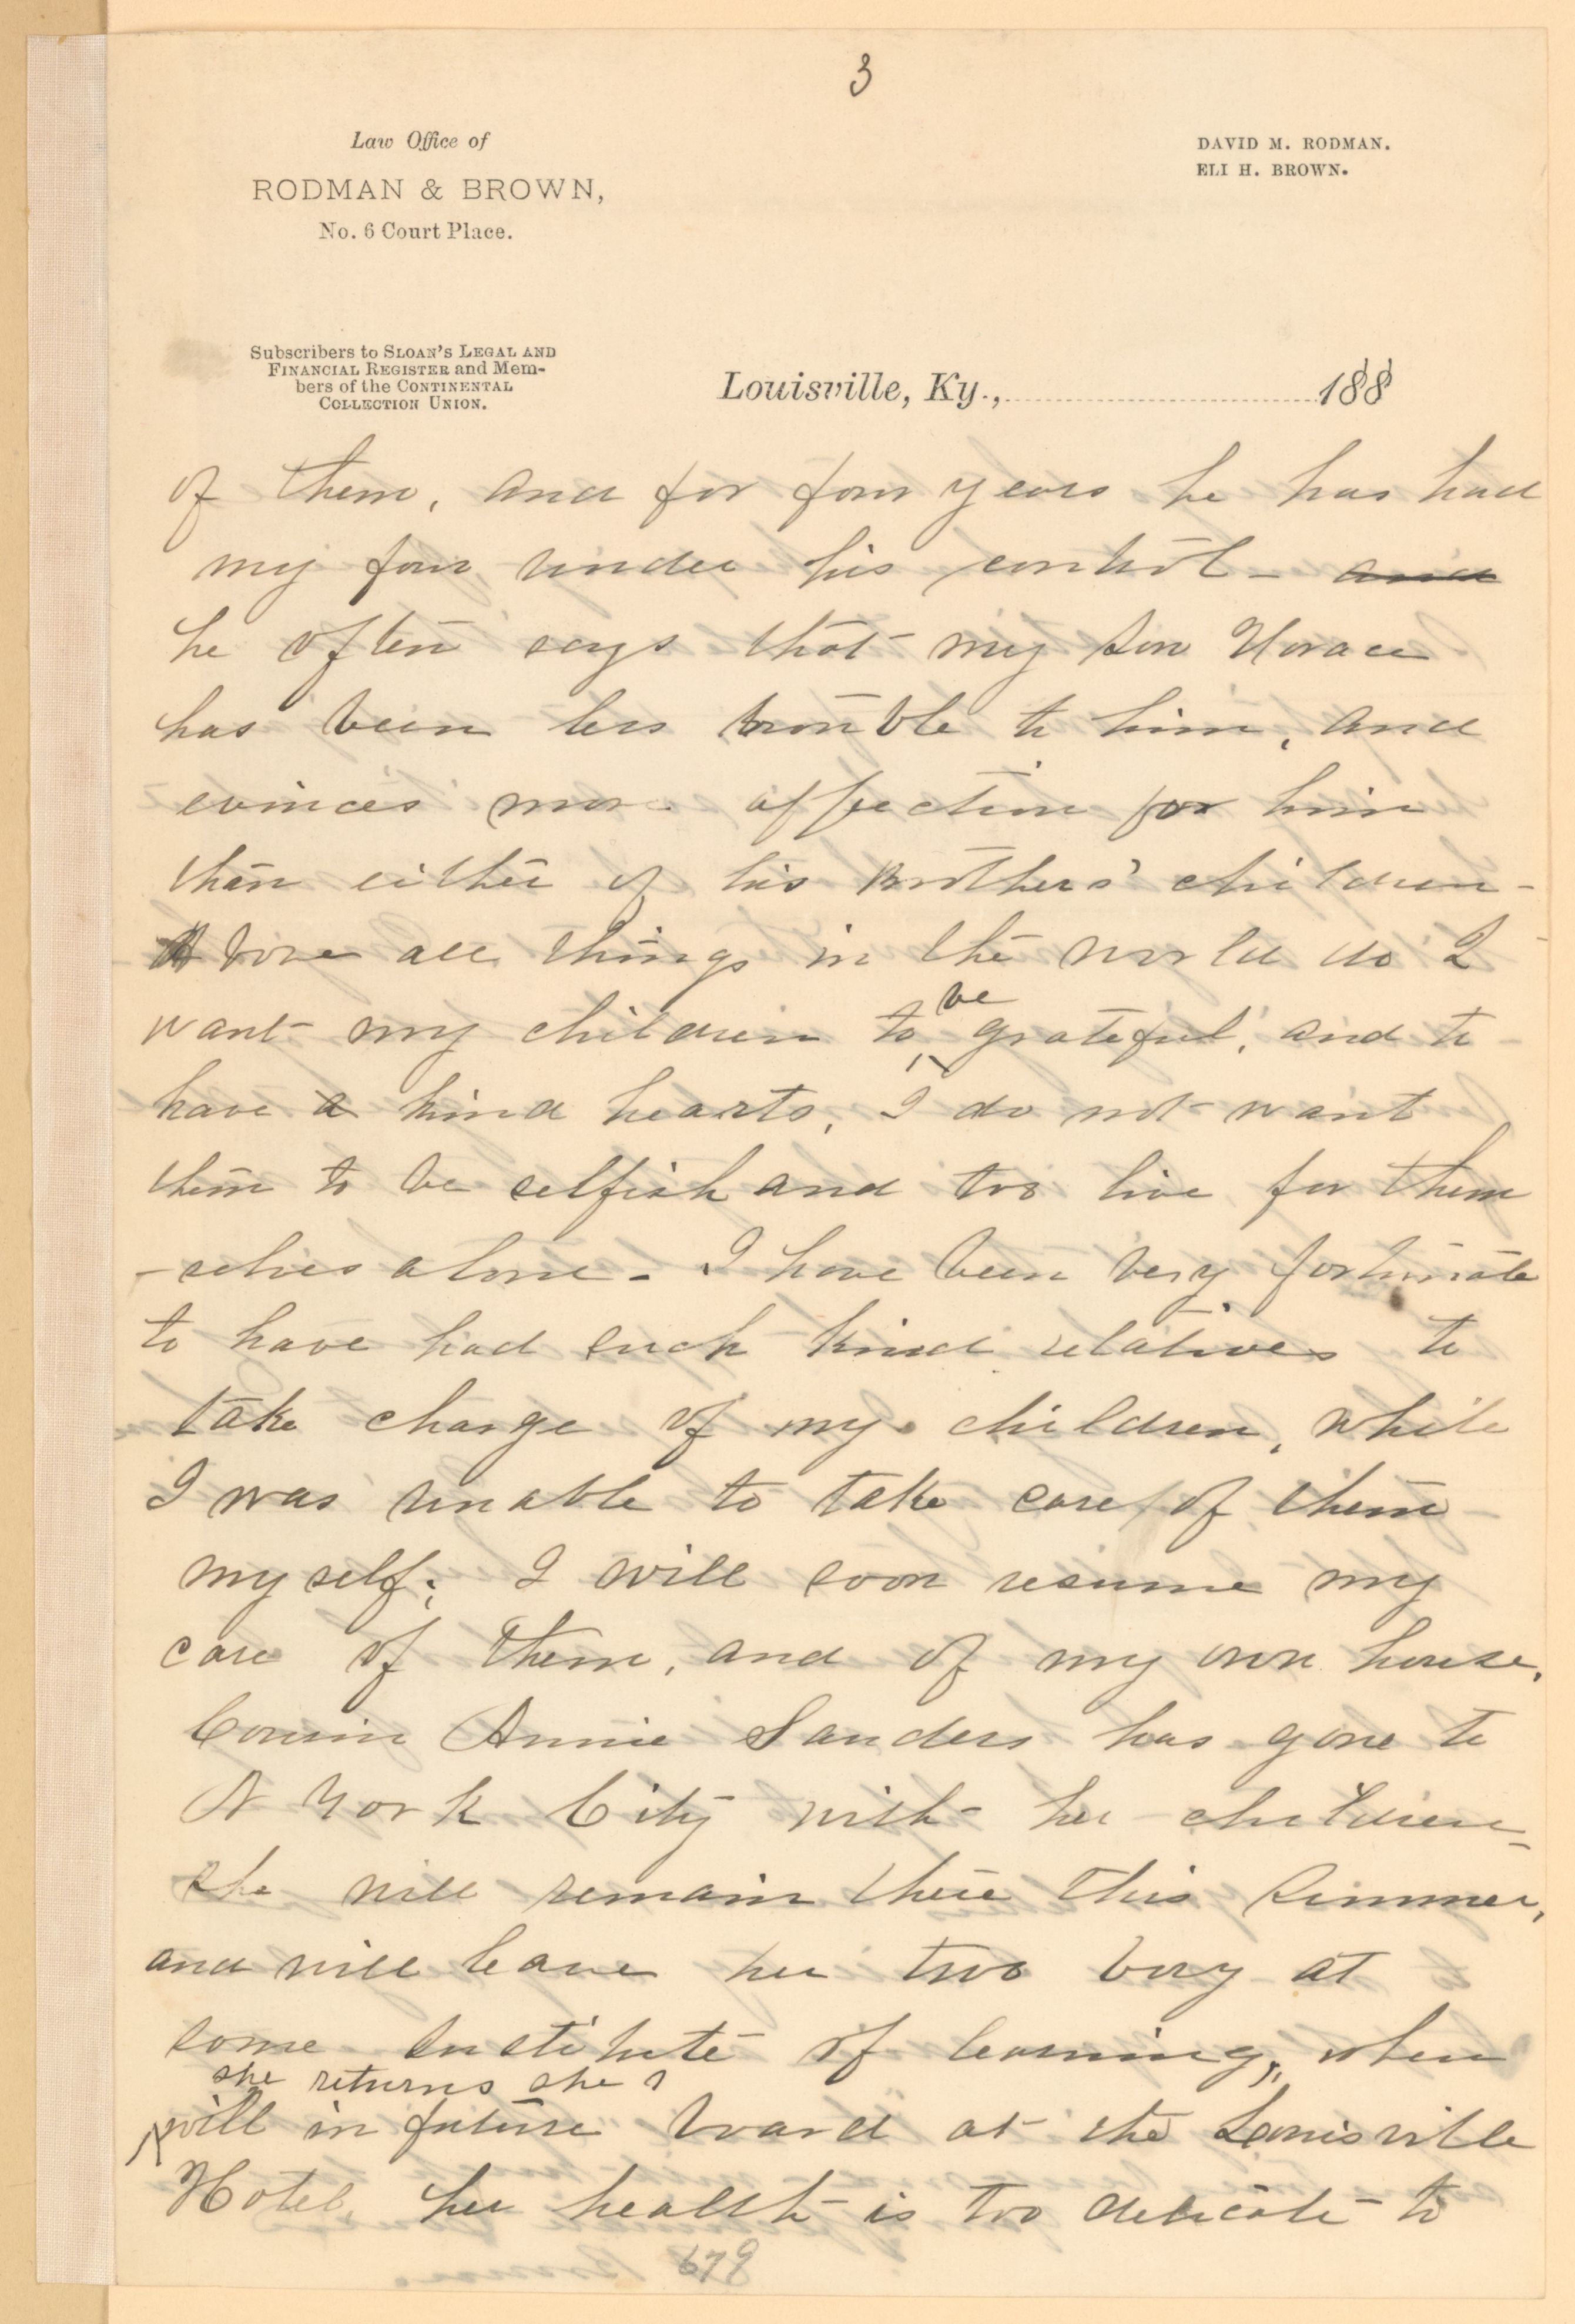 3
Law Office of
RODMAN & BROWN,
No. 6 Court Place.
DAVID M. RODMAN.
ELI H. BROWN.
Subscribers to SLOAN'S LEGAL AND
FINANCIAL REGISTER and Mem-
bers of the CONTINENTAL
COLLECTION UNION.
Louisville, Ky., 188
of them, and for four years he has had
my four under his control - and
he often says that my son Horace
has been less trouble to him, and
evinces more affection for him
than either of his Brothers' children -
Above all things in the world do I
want my children to be grateful, and to
have a kind hearts, I do not want
them to be selfish and too live for them
-selves alone - I have been very fortunate
to have had such kind relatives to
take charge of my children, while
I was unable to take care of them
myself; I will soon resume my
care of them, and of my own house.
Cousin Annie Sanders has gone to
N York City with her children -
she will remain there this summer,
and will leave her two boy at
some institute of learning, when
she returns she
will in future board at the Louisville
Hotel, her health is too delicate to
679